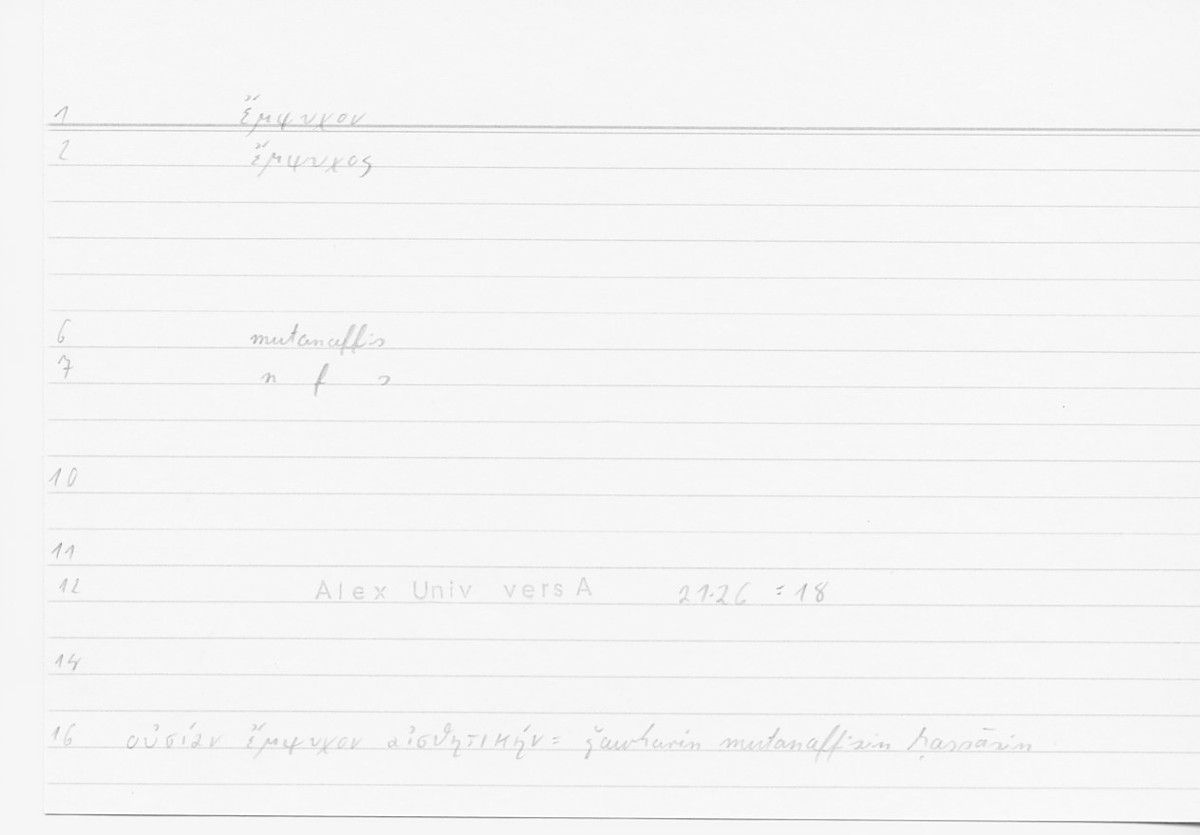 1 ἔμψυχον
2 ἔμψυχος
6 mutanaffis
7 n f s
10
11
12 Alex Univ vers A 21.26 = 18
14
16 οὐσίαν ἔμψυχον αἰσθητικήν = ǧawharin mutanaffisin ḥassāsin